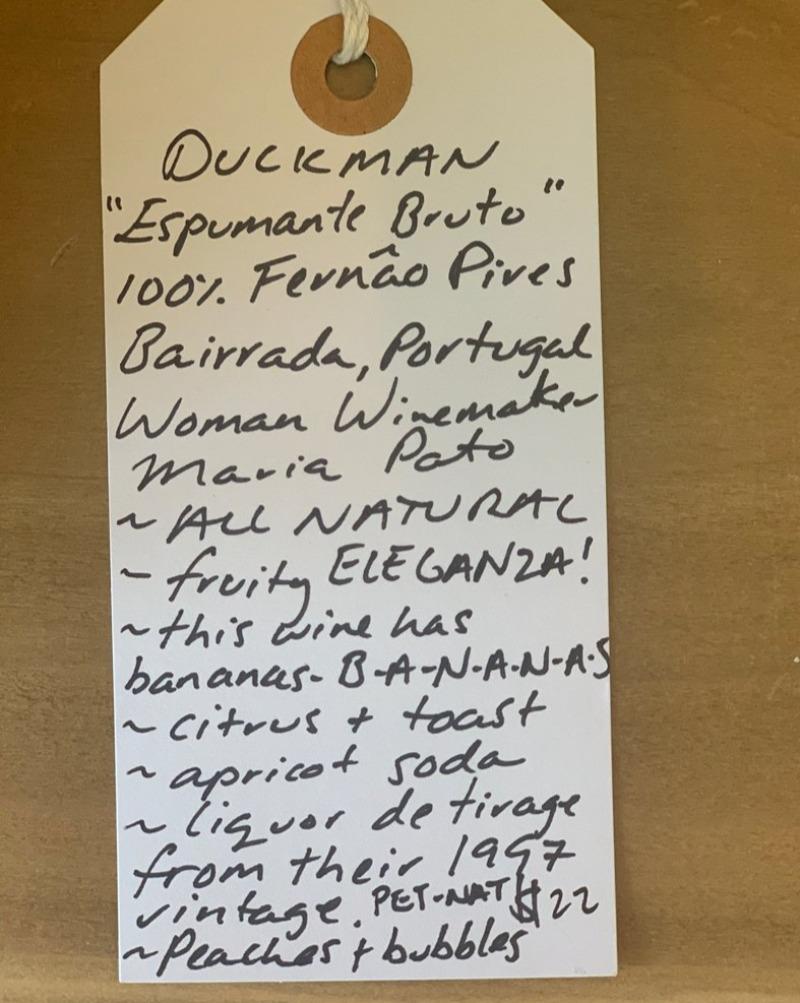 DUCKMAN
"Espumante Bruto"
100% Fernâo Pires
Bairrada, Portugal
Woman Winemaker
Maria Pato
~ ALL NATURAL
~ fruity ELEGANZA!
~ this wine has
bananas- B-A-N-A-N-A-S
~ citrus + toast
~ apricot soda
~ liquor de tirage
from their 1997
vintage. PET-NAT $22
~ Peaches + bubbles